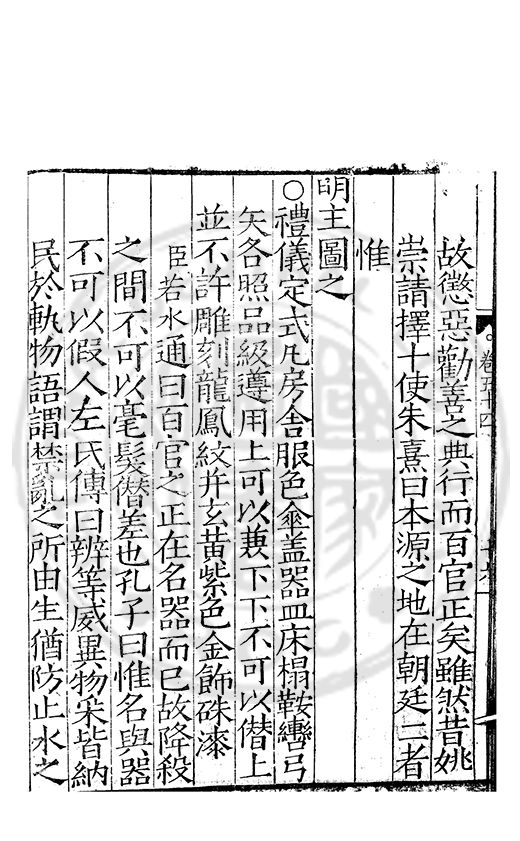 卷五十四
故懲惡勸善之典行而百官正矣雖然昔姚
崇請擇十使朱熹曰本源之地在朝廷二者
惟
明主圖之
○禮儀定式凡房舍服色傘蓋器皿床榻鞍轡弓
矢各照品級遵用上可以兼下下不可以僭上
並不許雕刻龍鳳紋并玄黃紫色金飾硃漆
臣若水通曰百官之正在名器而已故降殺
之間不可以毫髮僭差也孔子曰惟名與器
不可以假人左氏傳曰辨等威異物采皆納
民於軌物語謂禁亂之所由生猶防止水之